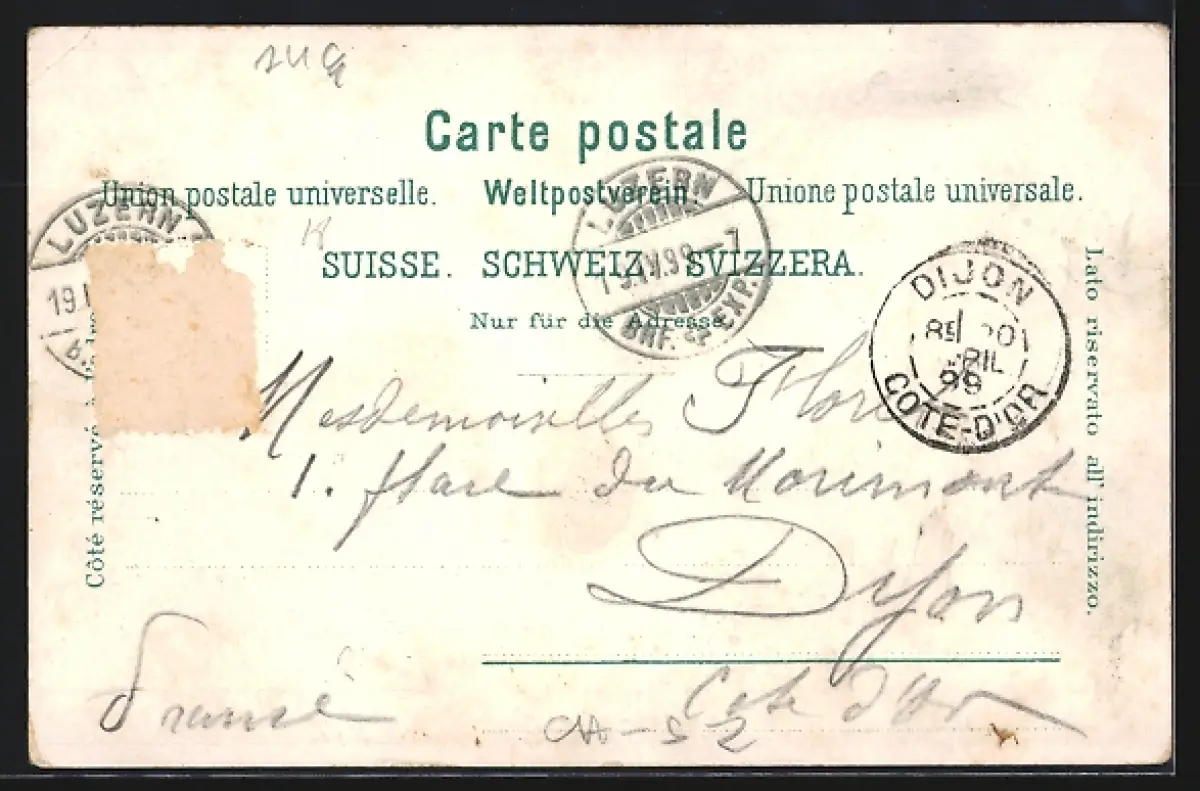 Carte postale
Union postale universelle. Weltpostverein. Unione postale universale.
SUISSE. SCHWEIZ. SVIZZERA.
Nur für die Adresse.
LUZERN
19.
LUZERN
19.IV.99-7
BRF. EXP.
DIJON
20
AVRIL
99
COTE-D'OR
Côté réservé à
Lato riservato all' indirizzo.
Mesdemoiselles
1. Place du Morimont
Dijon
Cote d'Or
France